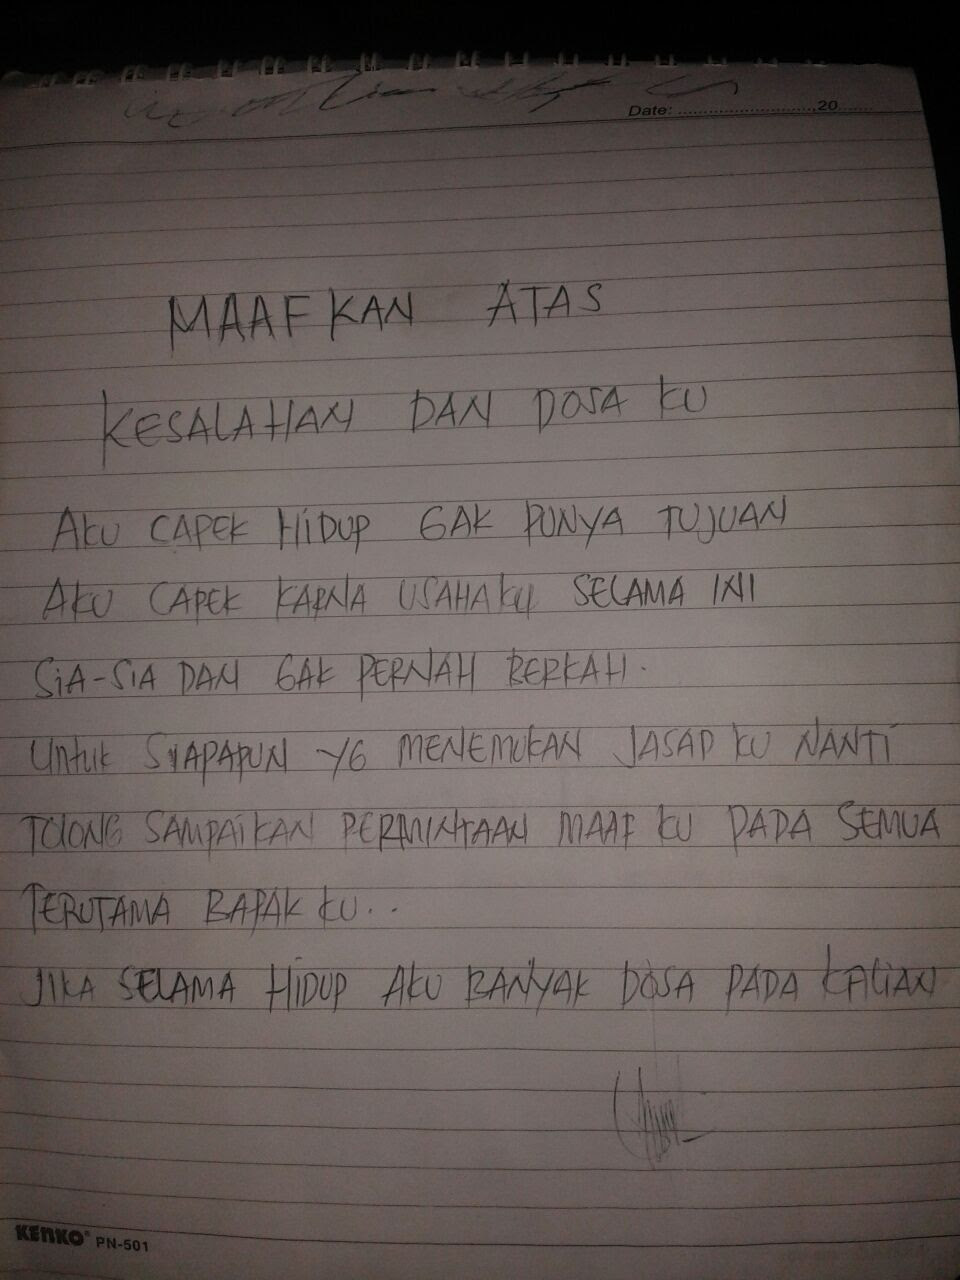 Date: ........................., 20........
MAAFKAN ATAS
KESALAHAN DAN DOSA KU
AKU CAPEK HiDUP GAK PUNYA TUJUAN
AKU CAPEK KARNA USAHAKU SELAMA INI
SiA-SiA DAN GAK PERNAH BERKAH.
Untuk SIAPAPUN YG MENEMUKAN JASAD KU NANTi
TOLONG SAMPAiKAN PERMINTAAN MAAF KU PADA SEMUA
TERUTAMA BAPAK KU..
JIKA SELAMA HiDUP AKU BANYAK DOSA PADA KALIAN
KENKO® PN-501